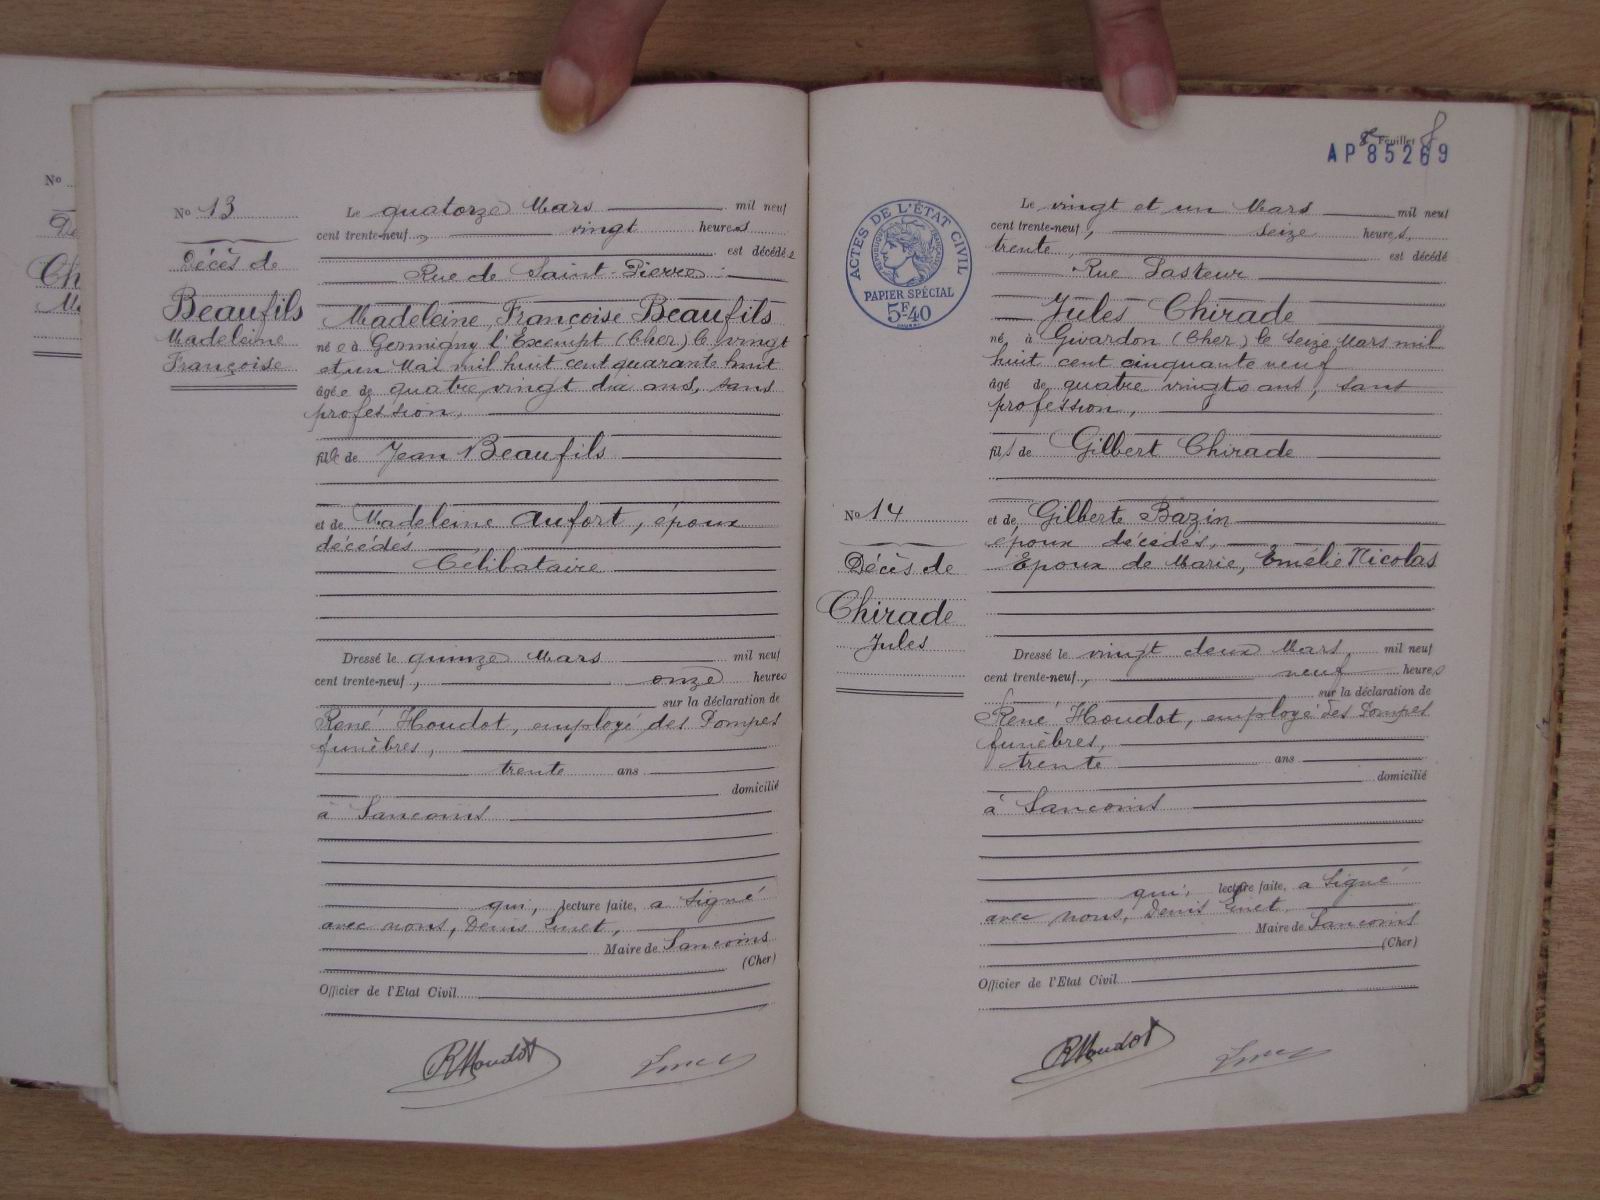 No
De
Ch
Ma
No 13
Décès de
Beaufils
Madeleine
Françoise
Le quatorze Mars mil neuf
cent trente-neuf, vingt heures
est décédée
Rue de Saint-Pierre :
Madeleine, Françoise Beaufils
née à Germigny l'Exempt (Cher) le vingt
et un Mai mil huit cent quarante huit
âgée de quatre vingt dix ans, sans
profession,
fille de Jean Beaufils
et de Madeleine Aufort, époux
décédés
Célibataire
Dressé le quinze Mars mil neuf
cent trente-neuf, onze heures
sur la déclaration de
René Houdot, employé des Pompes
funèbres,
trente ans
domicilié
à Sancoins
qui, lecture faite, a signé
avec nous, Denis
Maire de Sancoins
(Cher)
Officier de l'Etat Civil
RHoudot
8 Feuillet 8
AP85269
ACTES DE L'ÉTAT CIVIL
RÉPUBLIQUE FRANÇAISE
PAPIER SPÉCIAL
5F40
No 14
Décès de
Chirade
Jules
Le vingt et un Mars mil neuf
cent trente-neuf, seize heures,
trente, est décédé
Rue Pasteur
Jules Chirade
né à Givardon (Cher) le seize Mars mil
huit cent cinquante neuf
âgé de quatre vingts ans, sans
profession,
fils de Gilbert Chirade
et de Gilberte Bazin
époux décédés,
Epoux de Marie, Emélie Nicolas
Dressé le vingt deux Mars, mil neuf
cent trente-neuf, neuf heures
sur la déclaration de
René Houdot, employé des Pompes
funèbres,
trente ans
domicilié
à Sancoins
qui, lecture faite, a signé
avec nous, Denis
Maire de Sancoins
(Cher)
Officier de l'Etat Civil
RHoudot